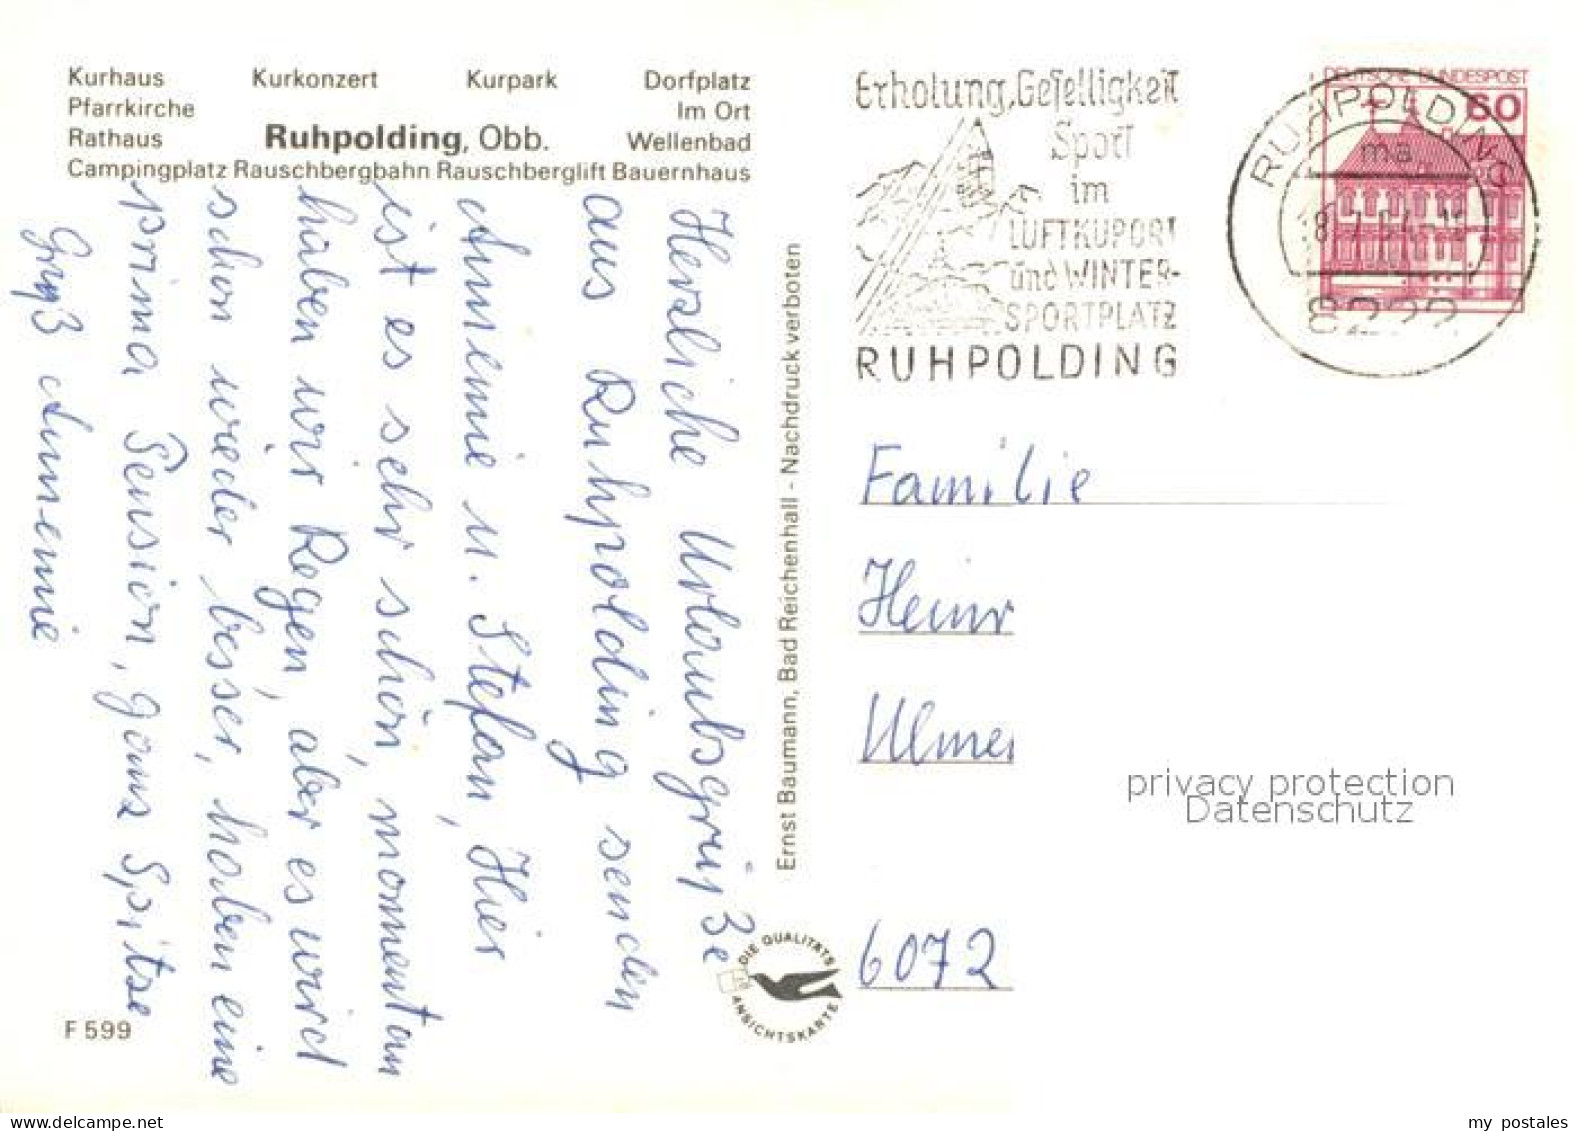 Kurhaus Kurkonzert Kurpark Dorfplatz
Pfarrkirche Im Ort
Rathaus Ruhpolding, Obb. Wellenbad
Campingplatz Rauschbergbahn Rauschberglift Bauernhaus
Herzliche Urlaubsgrüße
aus Ruhpolding senden
Annemie u. Stefan, Hier
ist es sehr schön, momentan
haben wir Regen, aber es wird
schon wieder besser, haben eine
prima Pension, ganz Spitze
Gruß Annemie
F 599
Ernst Baumann, Bad Reichenhall - Nachdruck verboten
DIE QUALITÄTS
ANSICHTSKARTE
Erholung, Geselligkeit
Sport
im
LUFTKURORT
und WINTER-
SPORTPLATZ
RUHPOLDING
DEUTSCHE BUNDESPOST
60
RUHPOLDING
ma
8222
Familie
Heinr
Ulmer
6072
privacy protection
Datenschutz
my postales